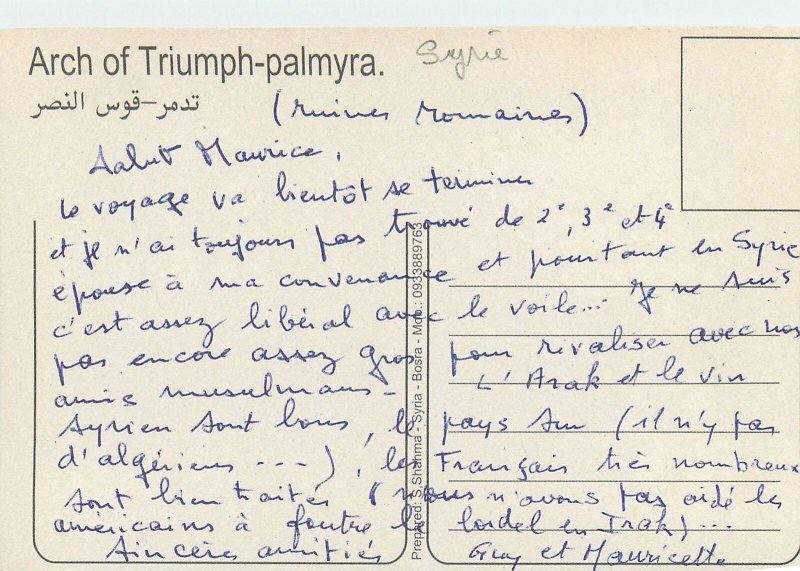 Arch of Triumph-palmyra. Syrie
تدمر-قوس النصر
(ruines romaines)
Salut Maurice,
Le voyage va bientôt se terminer
et je n'ai toujours pas trouvé de 2e, 3e et 4e
épouse à ma convenance et pourtant en Syrie
c'est assez libéral avec le voile... Je ne suis
pas encore assez gros pour rivaliser avec nos
amis musulmans - L'Arak et le vin
syrien sont bons, le pays sur (il n'y pas
d'algériens ---), les Français très nombreux
sont bien traités (nous n'avons pas aidé les
américains à foutre le bordel en Irak)...
Sincères amitiés Guy et Mauricette
Prepared: S.Shahma - Syria - Bosra - Mob.: 0933889763